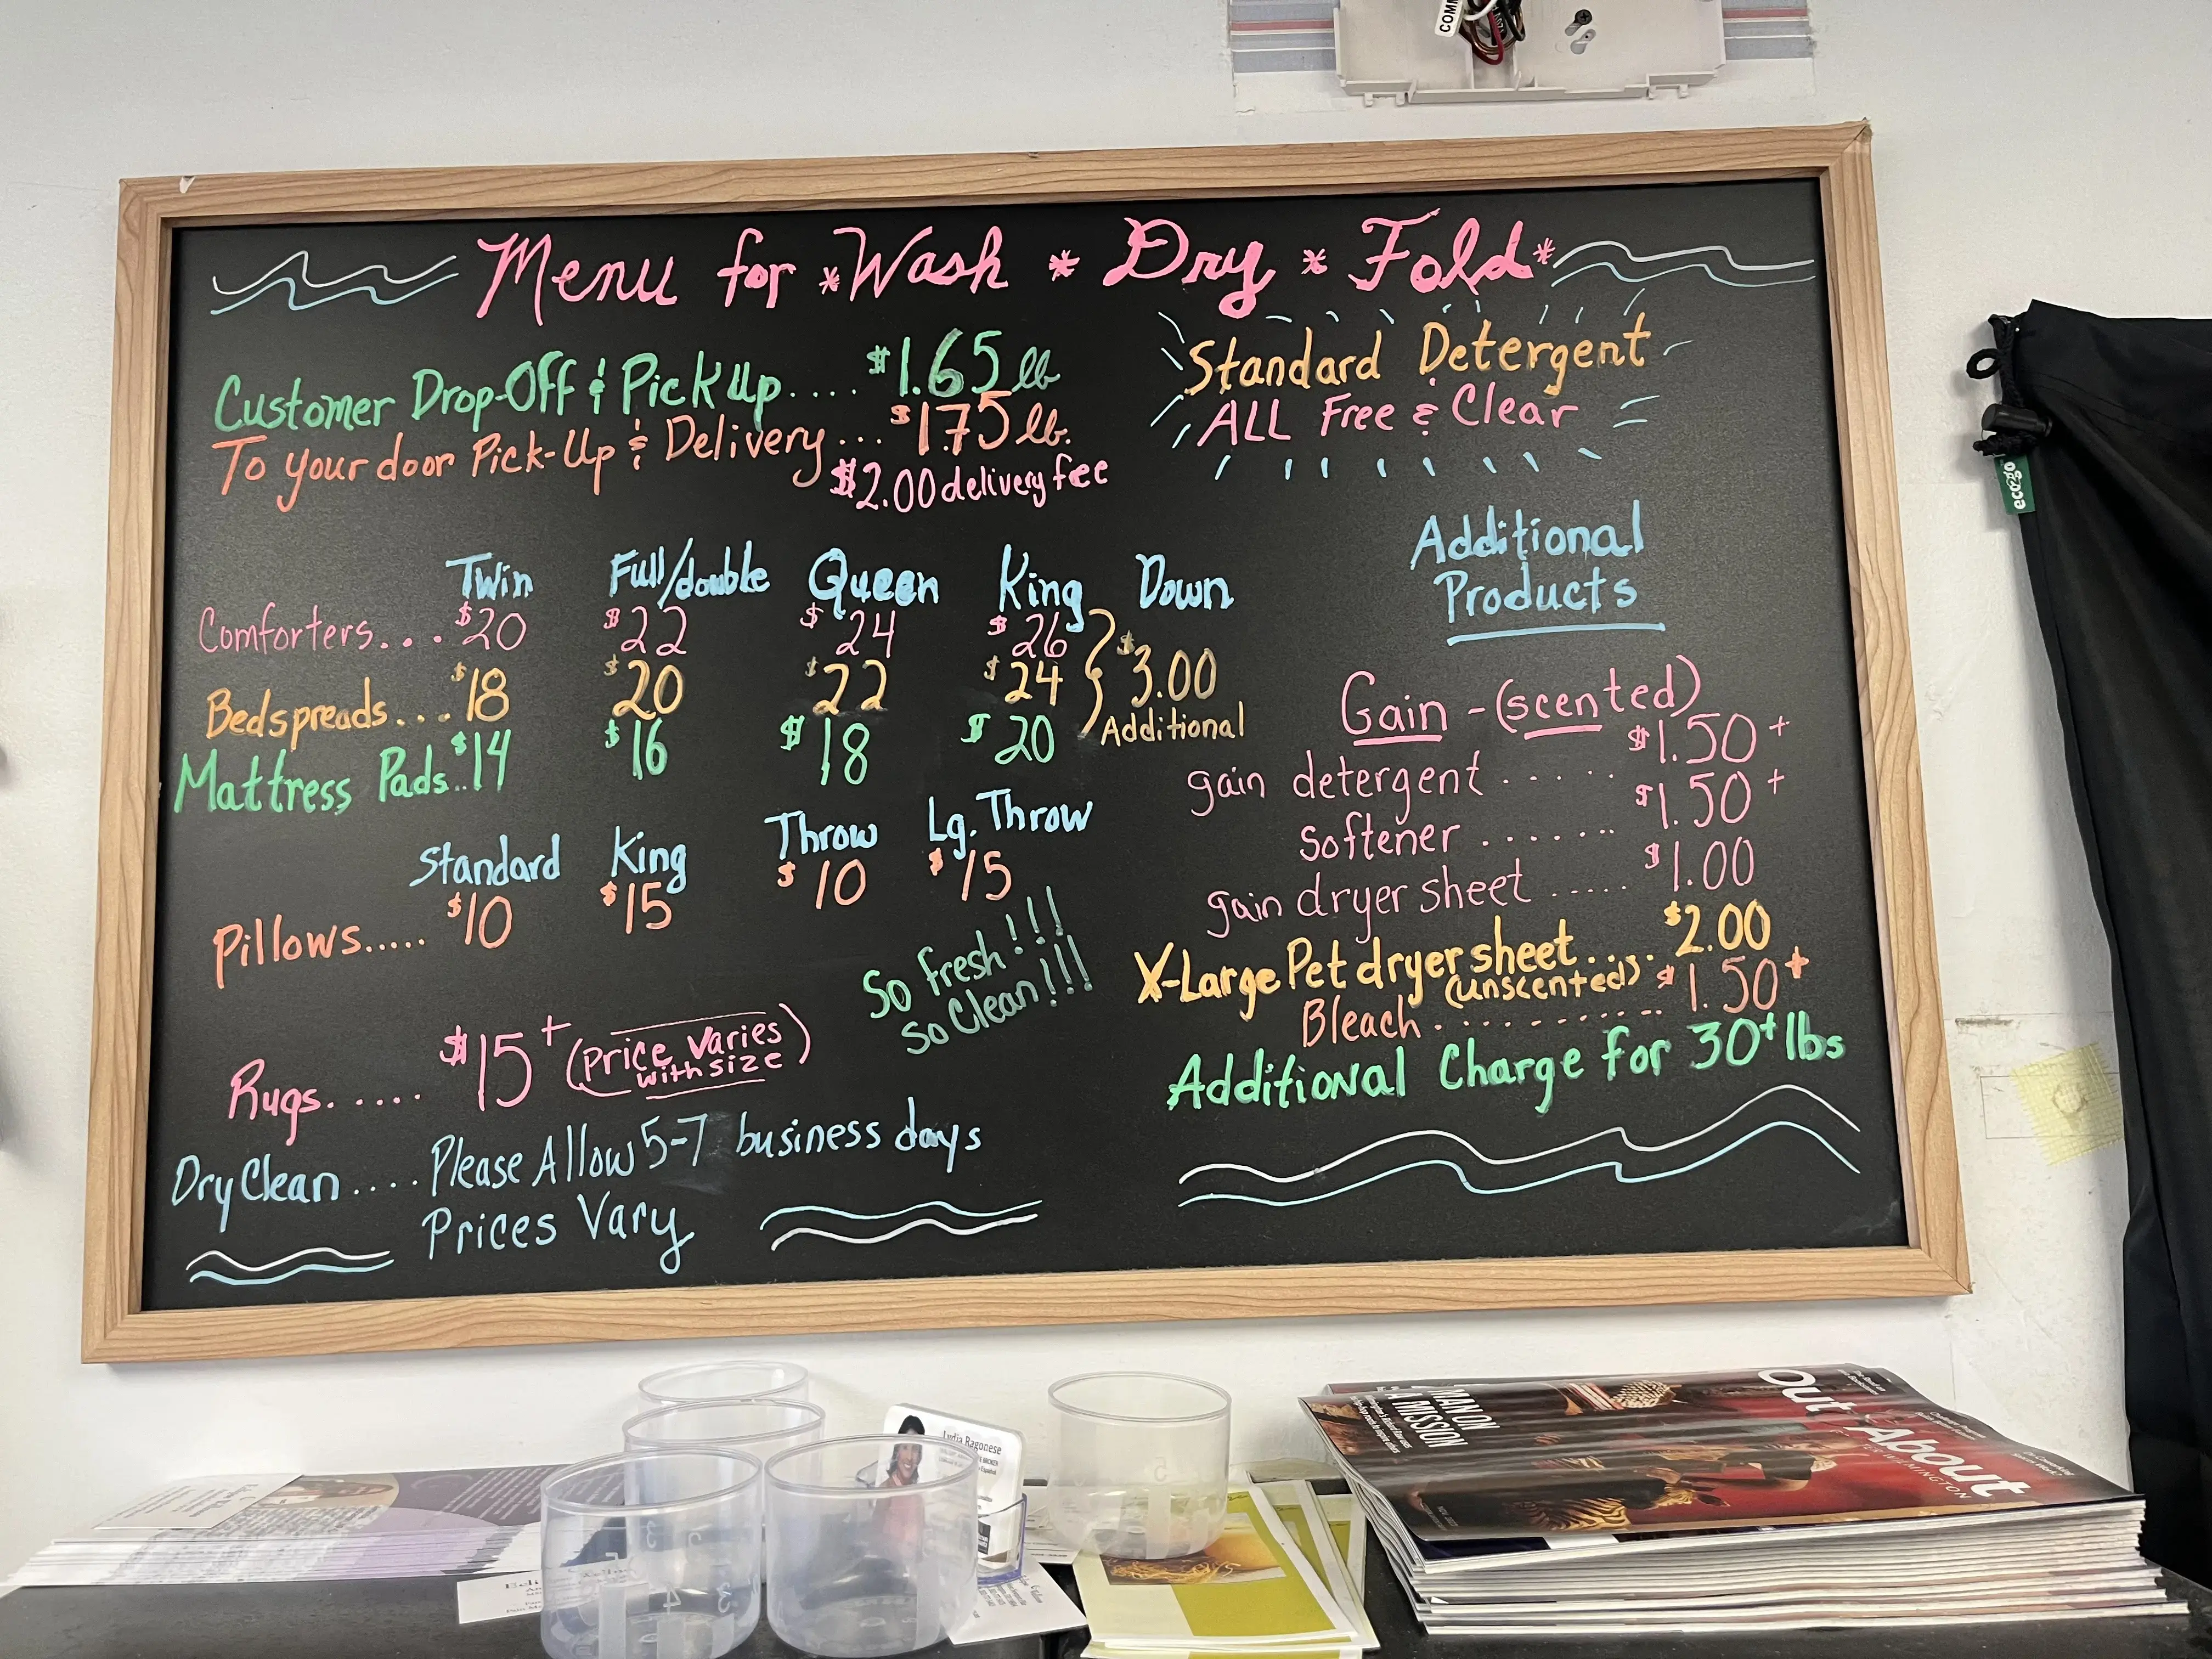 COMM
Menu for *Wash * Dry * Fold*
Customer Drop-Off & Pick Up.... $1.65 lb
To your door Pick-Up & Delivery... $1.75 lb.
$2.00 delivery fee
Standard Detergent
ALL Free & Clear
Twin Full/double Queen King Down
Comforters... $20 $22 $24 $26
Bedspreads... $18 $20 $22 $24
Mattress Pads.. $14 $16 $18 $20
$3.00
Additional
Standard King Throw Lg. Throw
Pillows..... $10 $15 $10 $15
So Fresh!!!
So Clean!!!
Rugs..... $15+ (Price Varies
with size)
Dry Clean.... Please Allow 5-7 business days
Prices Vary
Additional
Products
Gain - (scented)
gain detergent ..... $1.50+
Softener ....... $1.50+
gain dryer sheet ..... $1.00
X-Large Pet dryer sheet.... $2.00
(unscented)
Bleach.......... $1.50+
Additional Charge for 30+ lbs
eco2go
Lydia Ragonese
BROKER
Español
MAN ON
A MISSION
Out & About
WILMINGTON